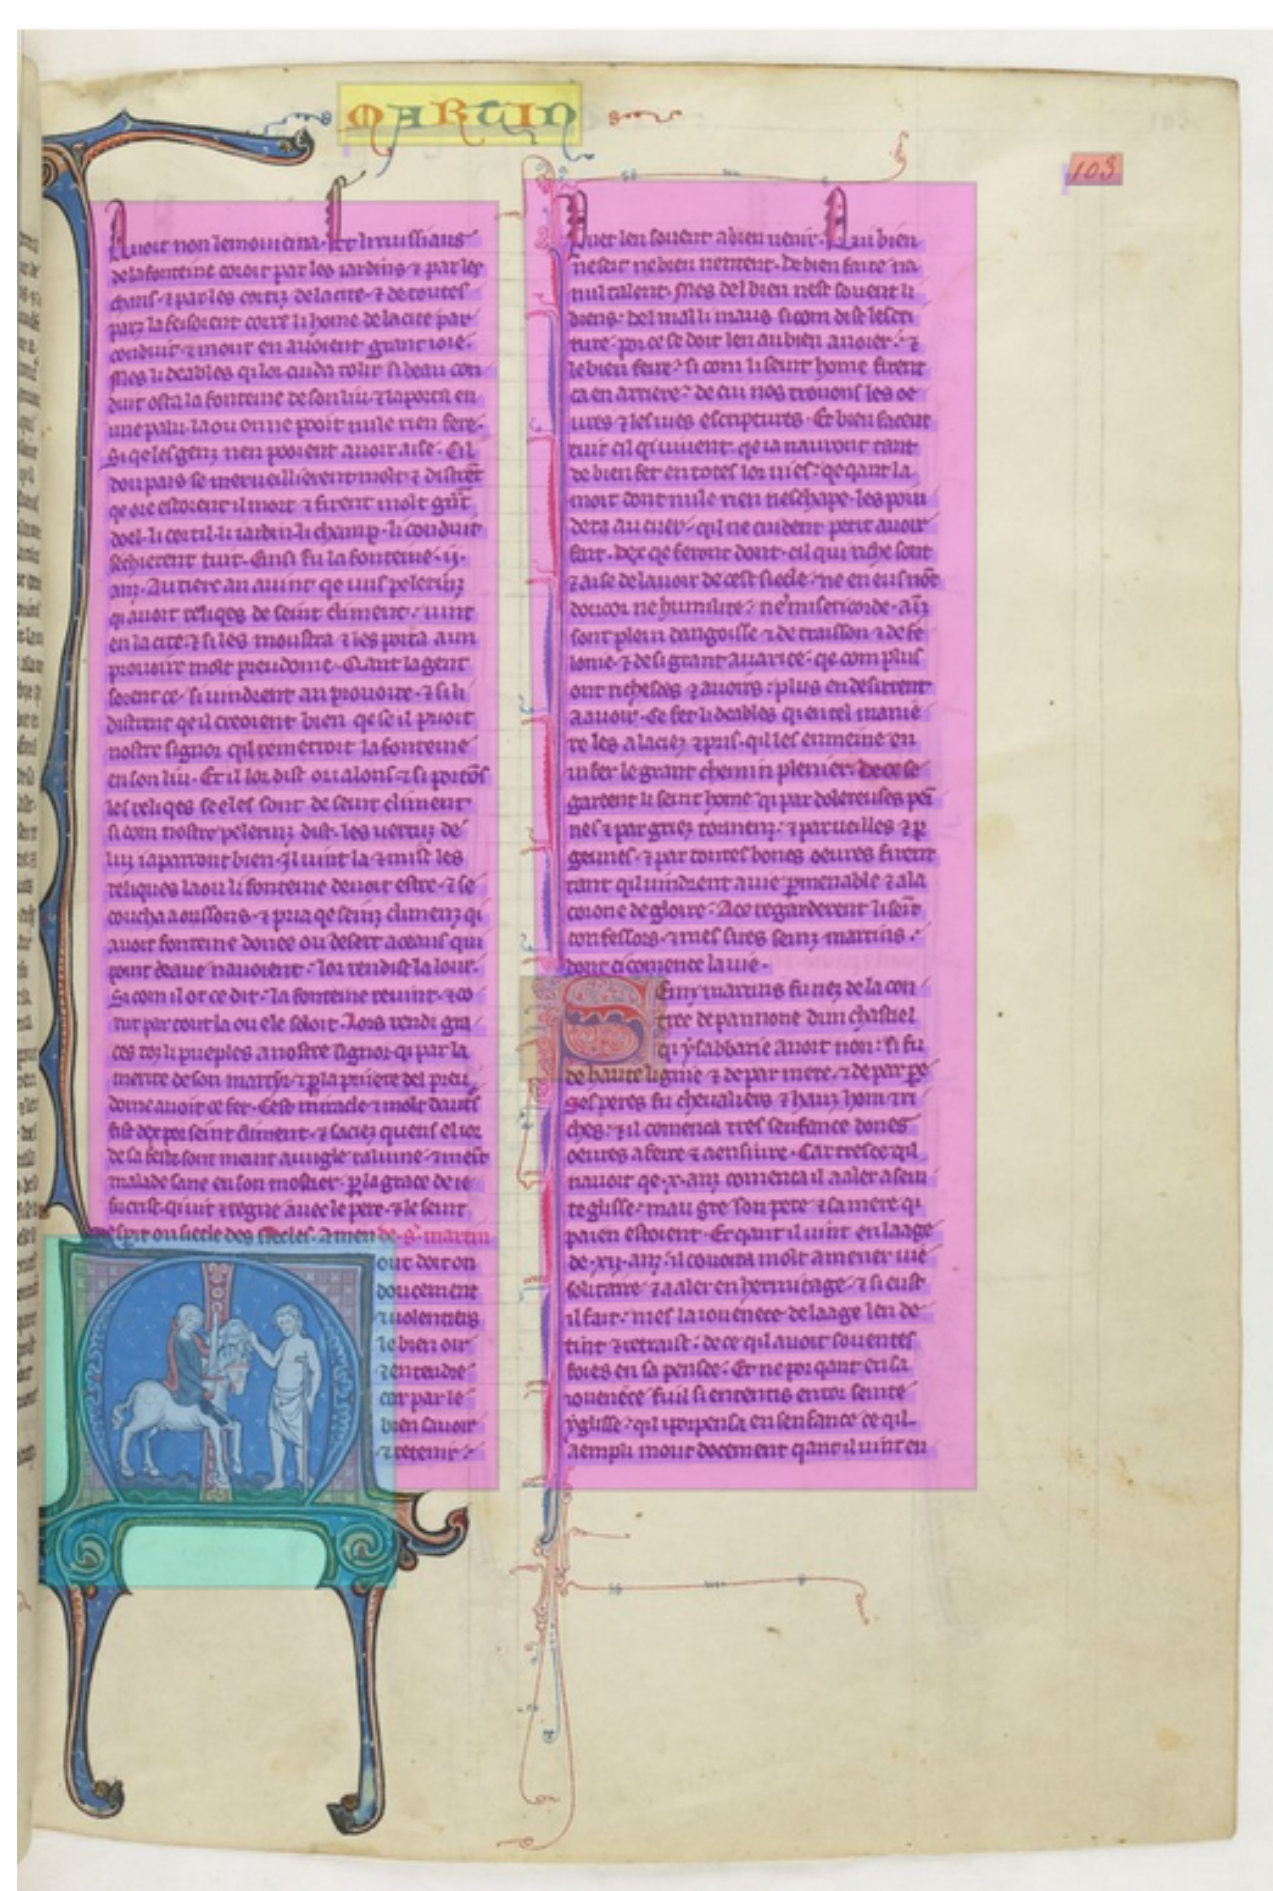 MARTIN
103
Auoit non lemouicina. Et li ruissiaus
de la fonteine coroit par les iardins ⁊ par les
chans. ⁊ par les cortiz de la cite. ⁊ de toutes
parz la fesoient corre li home de la cite par
conduit. ⁊ mout en auoient grant ioie.
Mes li deables qi lor cuida tolir si beau con
duit osta la fonteine de son liu. ⁊ la porta en
une palu. la ou on ne pooit nule rien fere.
Si qe les genz nen pooient auoir aise. Cil
dou pais se merueillierent molt. ⁊ distrent
qe ore estoient il mort ⁊ firent molt grāt
doel. li cortil. li iardin. li champ. li conduit
sechierent tuit. Einsi fu la fonteine .ij.
anz. Au tierc an auint qe uns pelerinz
qi auoit reliqes de seint climent. uint
en la cite. ⁊ si les moustra ⁊ les porta a un
prouoire molt preudome. Qant la gent
sorent ce. si uindrent au prouoire. ⁊ si li
distrent qe il creoient bien qe se il prioit
nostre signor qil remetroit la fonteine
en son liu. Et il lor dist or i alons. ⁊ si portōs
les reliqes se eles sont de seint climent
si com nostre pelerinz dist. les uertuz de
lui i aparront bien. Il uint la ⁊ mist les
reliques la ou li fonteine deuoit estre. ⁊ se
coucha a oussons. ⁊ pria qe seinz climenz qi
auoit fonteine donee ou desert a ceaus qui
point deaue nauoient. lor rendist la lour.
Si com il ot ce dit. la fonteine reuint. ⁊ co
rut par tout la ou ele soloit. Lors rendi gra
ces toz li pueples a nostre signor. qi par la
merite de son martyr. ⁊ ꝑ la priere del preu
dome auoit ce fet. Cest miracle ⁊ molt dautᷤ
fist dex por seint climent. ⁊ sachiez quen
de sa feste sont meint auugle ralume. ⁊ meīt
malade sane en son mostier. ꝑ la grace de ie
sucrist. qi uit ⁊ regne auec le pere. ⁊ le seint
espir ou siecle des siecles. Amen de .s. martin
out doit on
doucement
⁊ uolentiers
le bien oir
⁊ entendre
car par le
bien sauoir
⁊ retenir.
Puet len souent a bien uenir. Qui bien
ne set ne bien nentent. De bien faire na
nul talent. Mes del bien nest souent li
biens. del mal li maus. si com dist lescri
ture. por ce se doit len au bien auoier. ⁊
le bien feire. si com li seint home firent
ca en arriere. de cui nos trouons les oe
ures ⁊ les uies escriptures. Et bien sacent
tuit cil qi uiuent. qe ia nauront tant
de bien fet en totes lor uies. qe qant la
mort dont nule rien neschape. les
au cuer. qil ne cuident petit auoir
fait. Dex qe feront dont. cil qui riche sont
⁊ aise de lauoir de cest siecle. ne en eus nōt
doucor ne humilite. ne misericorde. ainz
sont plein dangoisse ⁊ de traisson ⁊ de fe
lonie. ⁊ de si grant auarice. qe com plus
ont richesces ⁊ auoirs. plus en desirrent
a auoir. Ce fet li deables qi en tel manie
re les a laciez ⁊ pris. qil les enmeine en
infer le grant chemin plenier. De ce se
gardent li seint home qi par dolereuses pei
nes ⁊ par griez tormenz. ⁊ par ueilles ⁊ ꝑ
geunes. ⁊ par toutes bones oeures firent
tant qil uindrent a uie ꝑmenable ⁊ a la
corone de gloire. A ce regarderent li seīt
confessors. ⁊ mes sires seinz martins.
dont ci comence la uie.
Seinz martins fu nez de la con
tree de pannone dun chastel
qi ysabbarie auoit non. si fu
de haute lignie ⁊ de par mere. ⁊ de par pe
Ses peres fu cheualiers ⁊ hauz hom ⁊ ri
ches. ⁊ il comenca tres senfance bones
oeures a feire ⁊ a ensiuire. Car tresce qil
nauoit qe .x. anz comenca il a aler a sein
te glisse. mau gre son pere ⁊ sa mere qi
paien estoient. Et qant il uint en laage
de .xij. anz. il couoita molt a mener uie
solitaire ⁊ a aler en hermitage. ⁊ si eust
il fait. mes la iouenece de laage len de
tint ⁊ retraist. de ce qil auoit souentes
foies en sa pensee. Et ne por qant en sa
iouenece fu il si ententis entor seinte
yglise. qil porpensa en senfance ce qil
aempli mout docement qant il uint en